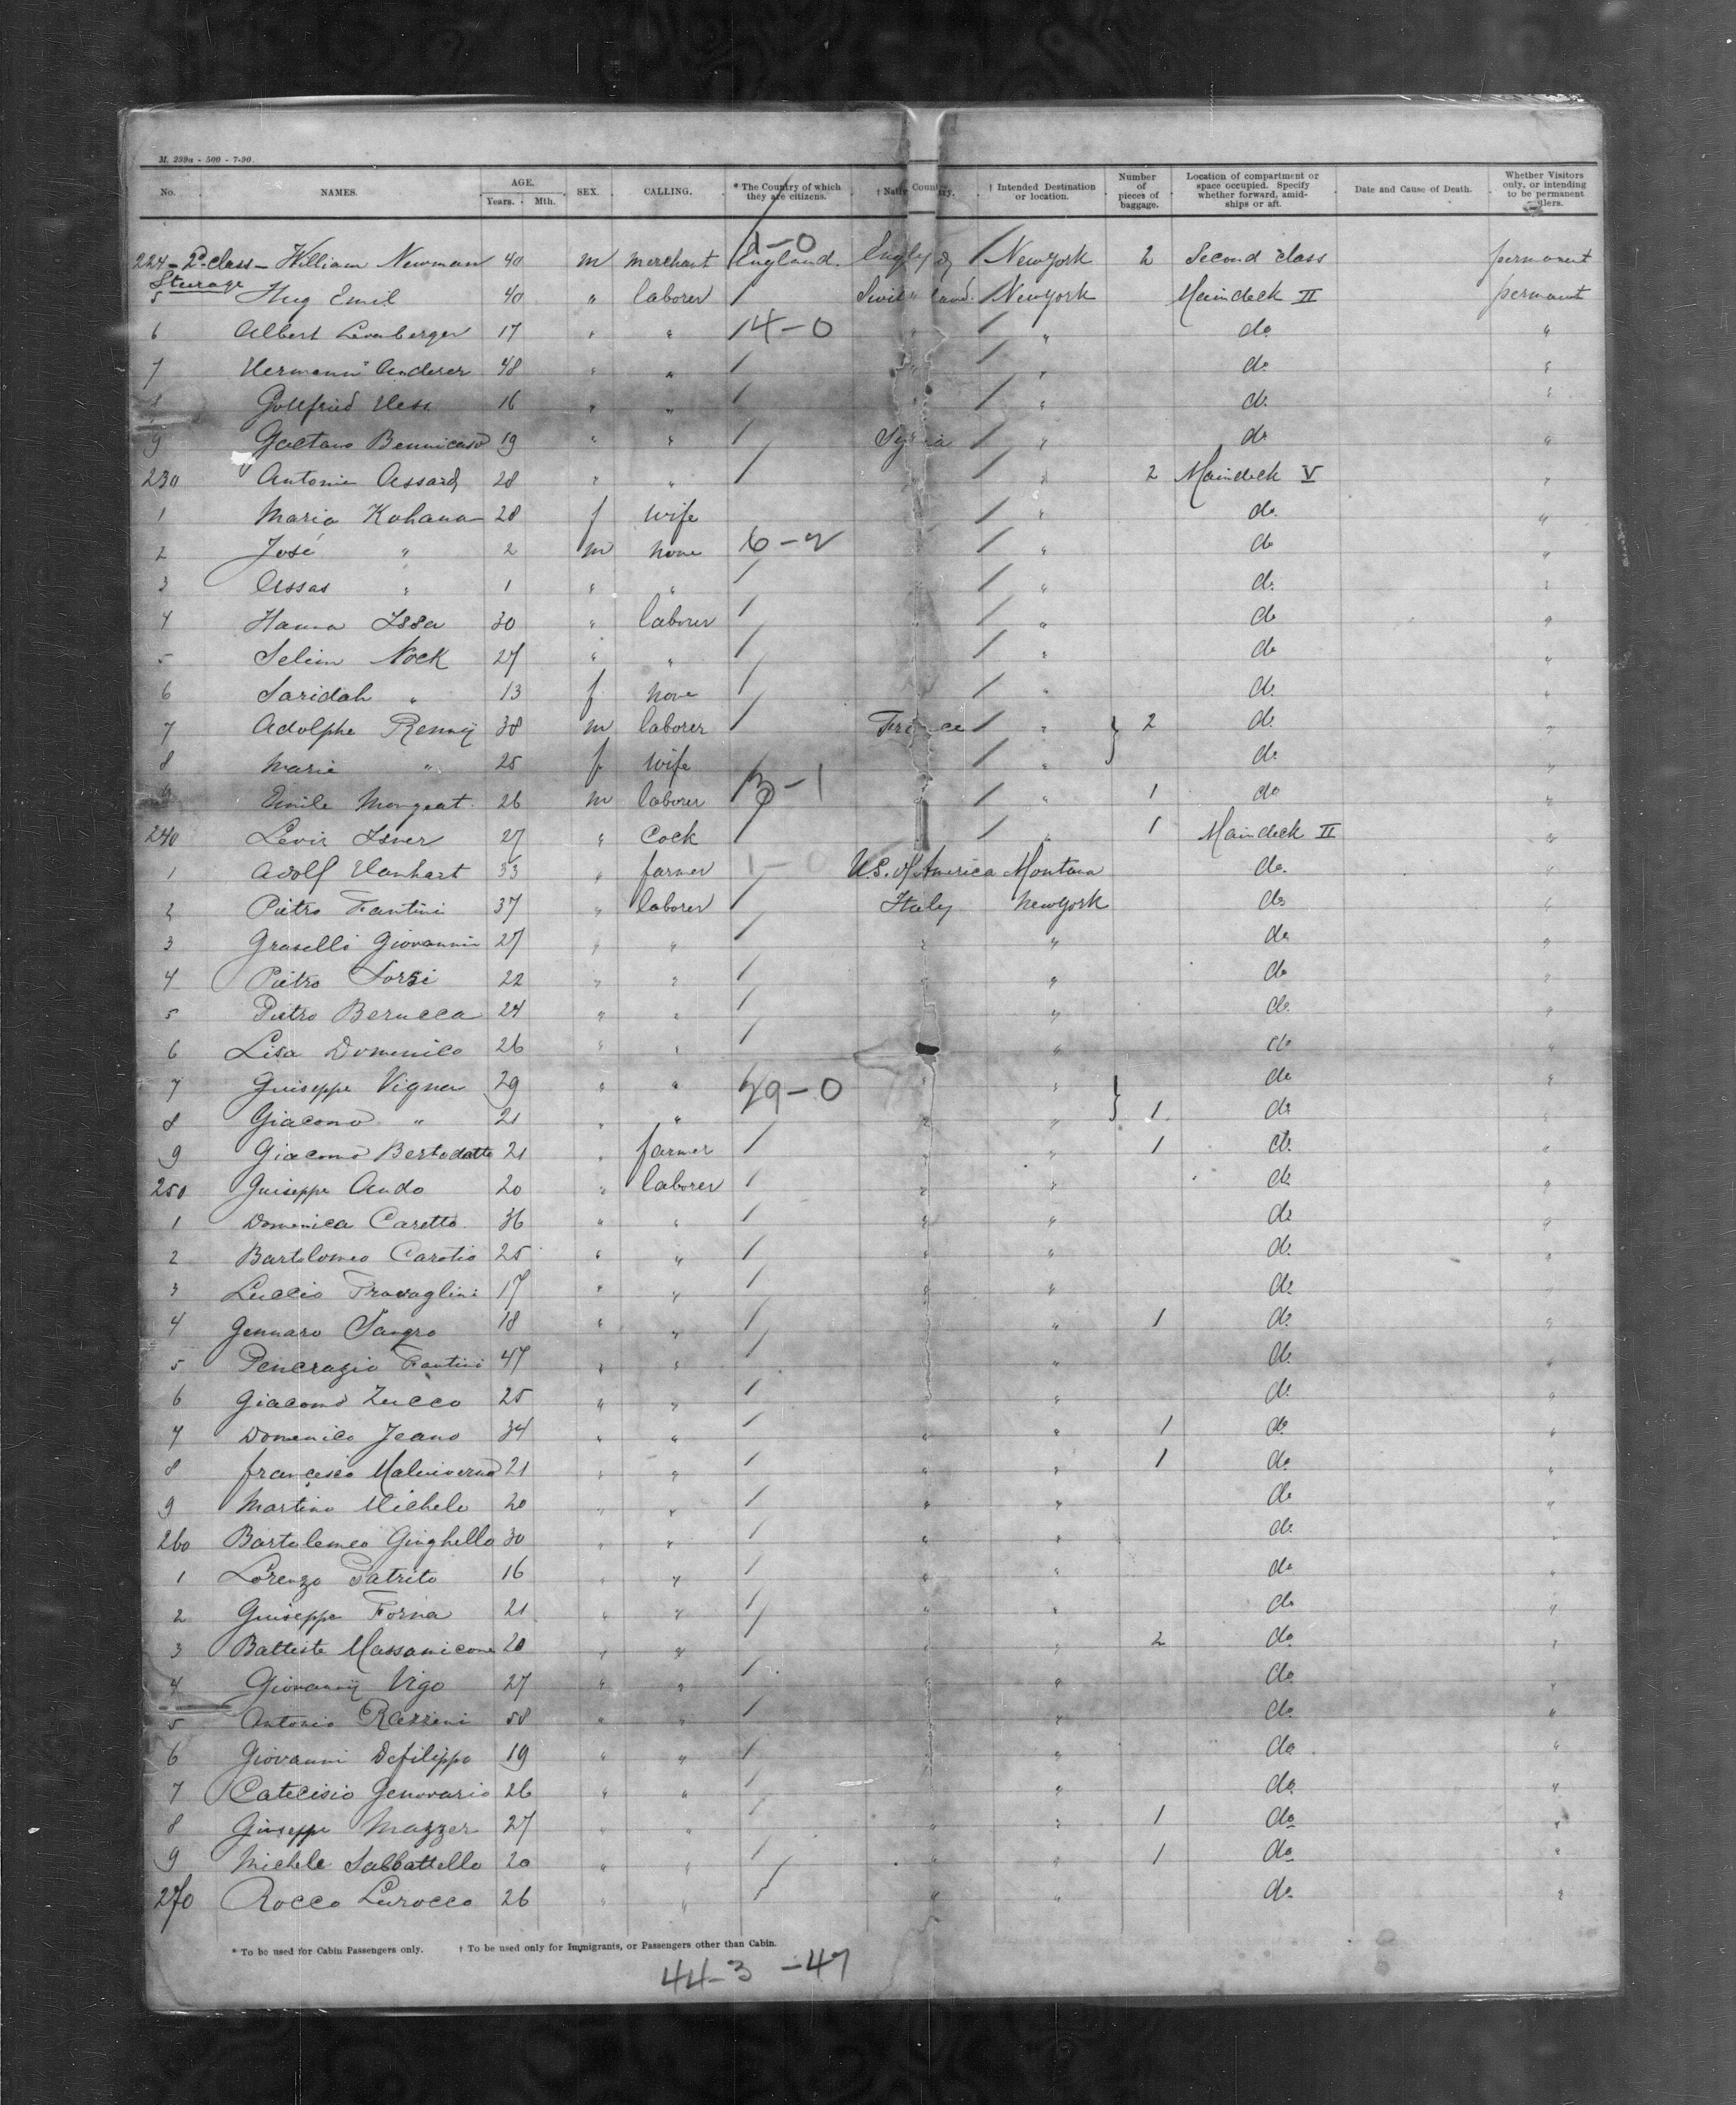 M. 239a - 500 - 7-90.
No. NAMES. AGE. Years. Mth. SEX. CALLING. * The Country of which they are citizens. † Native Country. † Intended Destination or location. Number of pieces of baggage. Location of compartment or space occupied. Specify whether forward, amidships or aft. Date and Cause of Death. Whether Visitors only, or intending to be permanent settlers.
1-0
224 - 2d class - William Newman 40 m merchant England. England / Newyork 2 Second class permanent
Sturage
5 Hug Emil 40 " laborer / Switzerland / Newyork Maindeck II permanent
6 Albert Levenberger 17 " " / 4-0 " / " do "
7 Hermann Anderer 48 " " / " / " do "
8 Gottfried Hess 16 " " / " / " do "
9 Gaetano 19 " " / Syria / " do "
230 Antonio Assard 28 " " / / " 2 Maindeck V "
1 Maria Kahana 28 f wife / " do "
2 José " 2 m none 6-2 / " do "
3 Assas " 1 " " / " / " do "
4 Hanna Issa 30 " laborer / " / " do "
5 Selim Nock 27 " " / / " do "
6 Saridah " 13 f none / / " do "
7 Adolphe Remy 38 m laborer / France / " } 2 do "
8 Marie " 25 f wife / " do "
9 Emile Mongeat 26 m laborer / 3-1 / " 1 do "
240 Levir Isner 27 " Cock / / " 1 Maindeck II "
1 Adolf Hanhart 33 " farmer 1-0 U.S. of America Montana do "
2 Pietro Fantini 37 " laborer / Italy Newyork do "
3 Graselli Giovanni 27 " " / " " do "
4 Pietro Sorsi 22 " " / " " do "
5 Pietro Berucca 24 " " / " do "
6 Lisa Domenico 26 " " / " do "
7 Guiseppe Vigna 29 " " / 29-0 " " } do "
8 Giacomo " 21 " " " " 1 do "
9 Giacomo Bertodatto 21 " farmer / " " 1 do "
250 Guiseppe Audo 20 " laborer / " " do "
1 Domenica Caretto 36 " " / " " do "
2 Bartolomeo Carotio 25 " " / " " do "
3 Luccio Travaglini 17 " " / " " do "
4 Gennaro Sangro 18 " " / " 1 do "
5 Pencrazio Fantini 47 " " / " do "
6 Giacomo Zucco 25 " " / " do "
7 Domenico Jeano 34 " " / " " 1 do "
8 francesco 21 " " / " " 1 do "
9 Martino Michele 20 " " / " " do "
260 Bartolomeo Ginghello 30 " " / " " do "
1 Lorenzo Patrito 16 " " / " " do "
2 Guiseppe Forna 21 " " / " " do "
3 Battista Massanicone 20 " " / " " 2 do "
4 Giovanny Vigo 27 " " / " " do "
5 Antonio Razzini 58 " " / " " do "
6 Giovanni Defilippo 19 " " / " " do "
7 Catecisio Genovario 26 " " / " " do "
8 Giuseppe Mazzer 27 " " / " " 1 do "
9 Michele Sabbattello 20 " " / " " 1 do "
270 Rocco Lurocco 26 " " / " " do "
* To be used for Cabin Passengers only. † To be used only for Immigrants, or Passengers other than Cabin.
44-3 -47